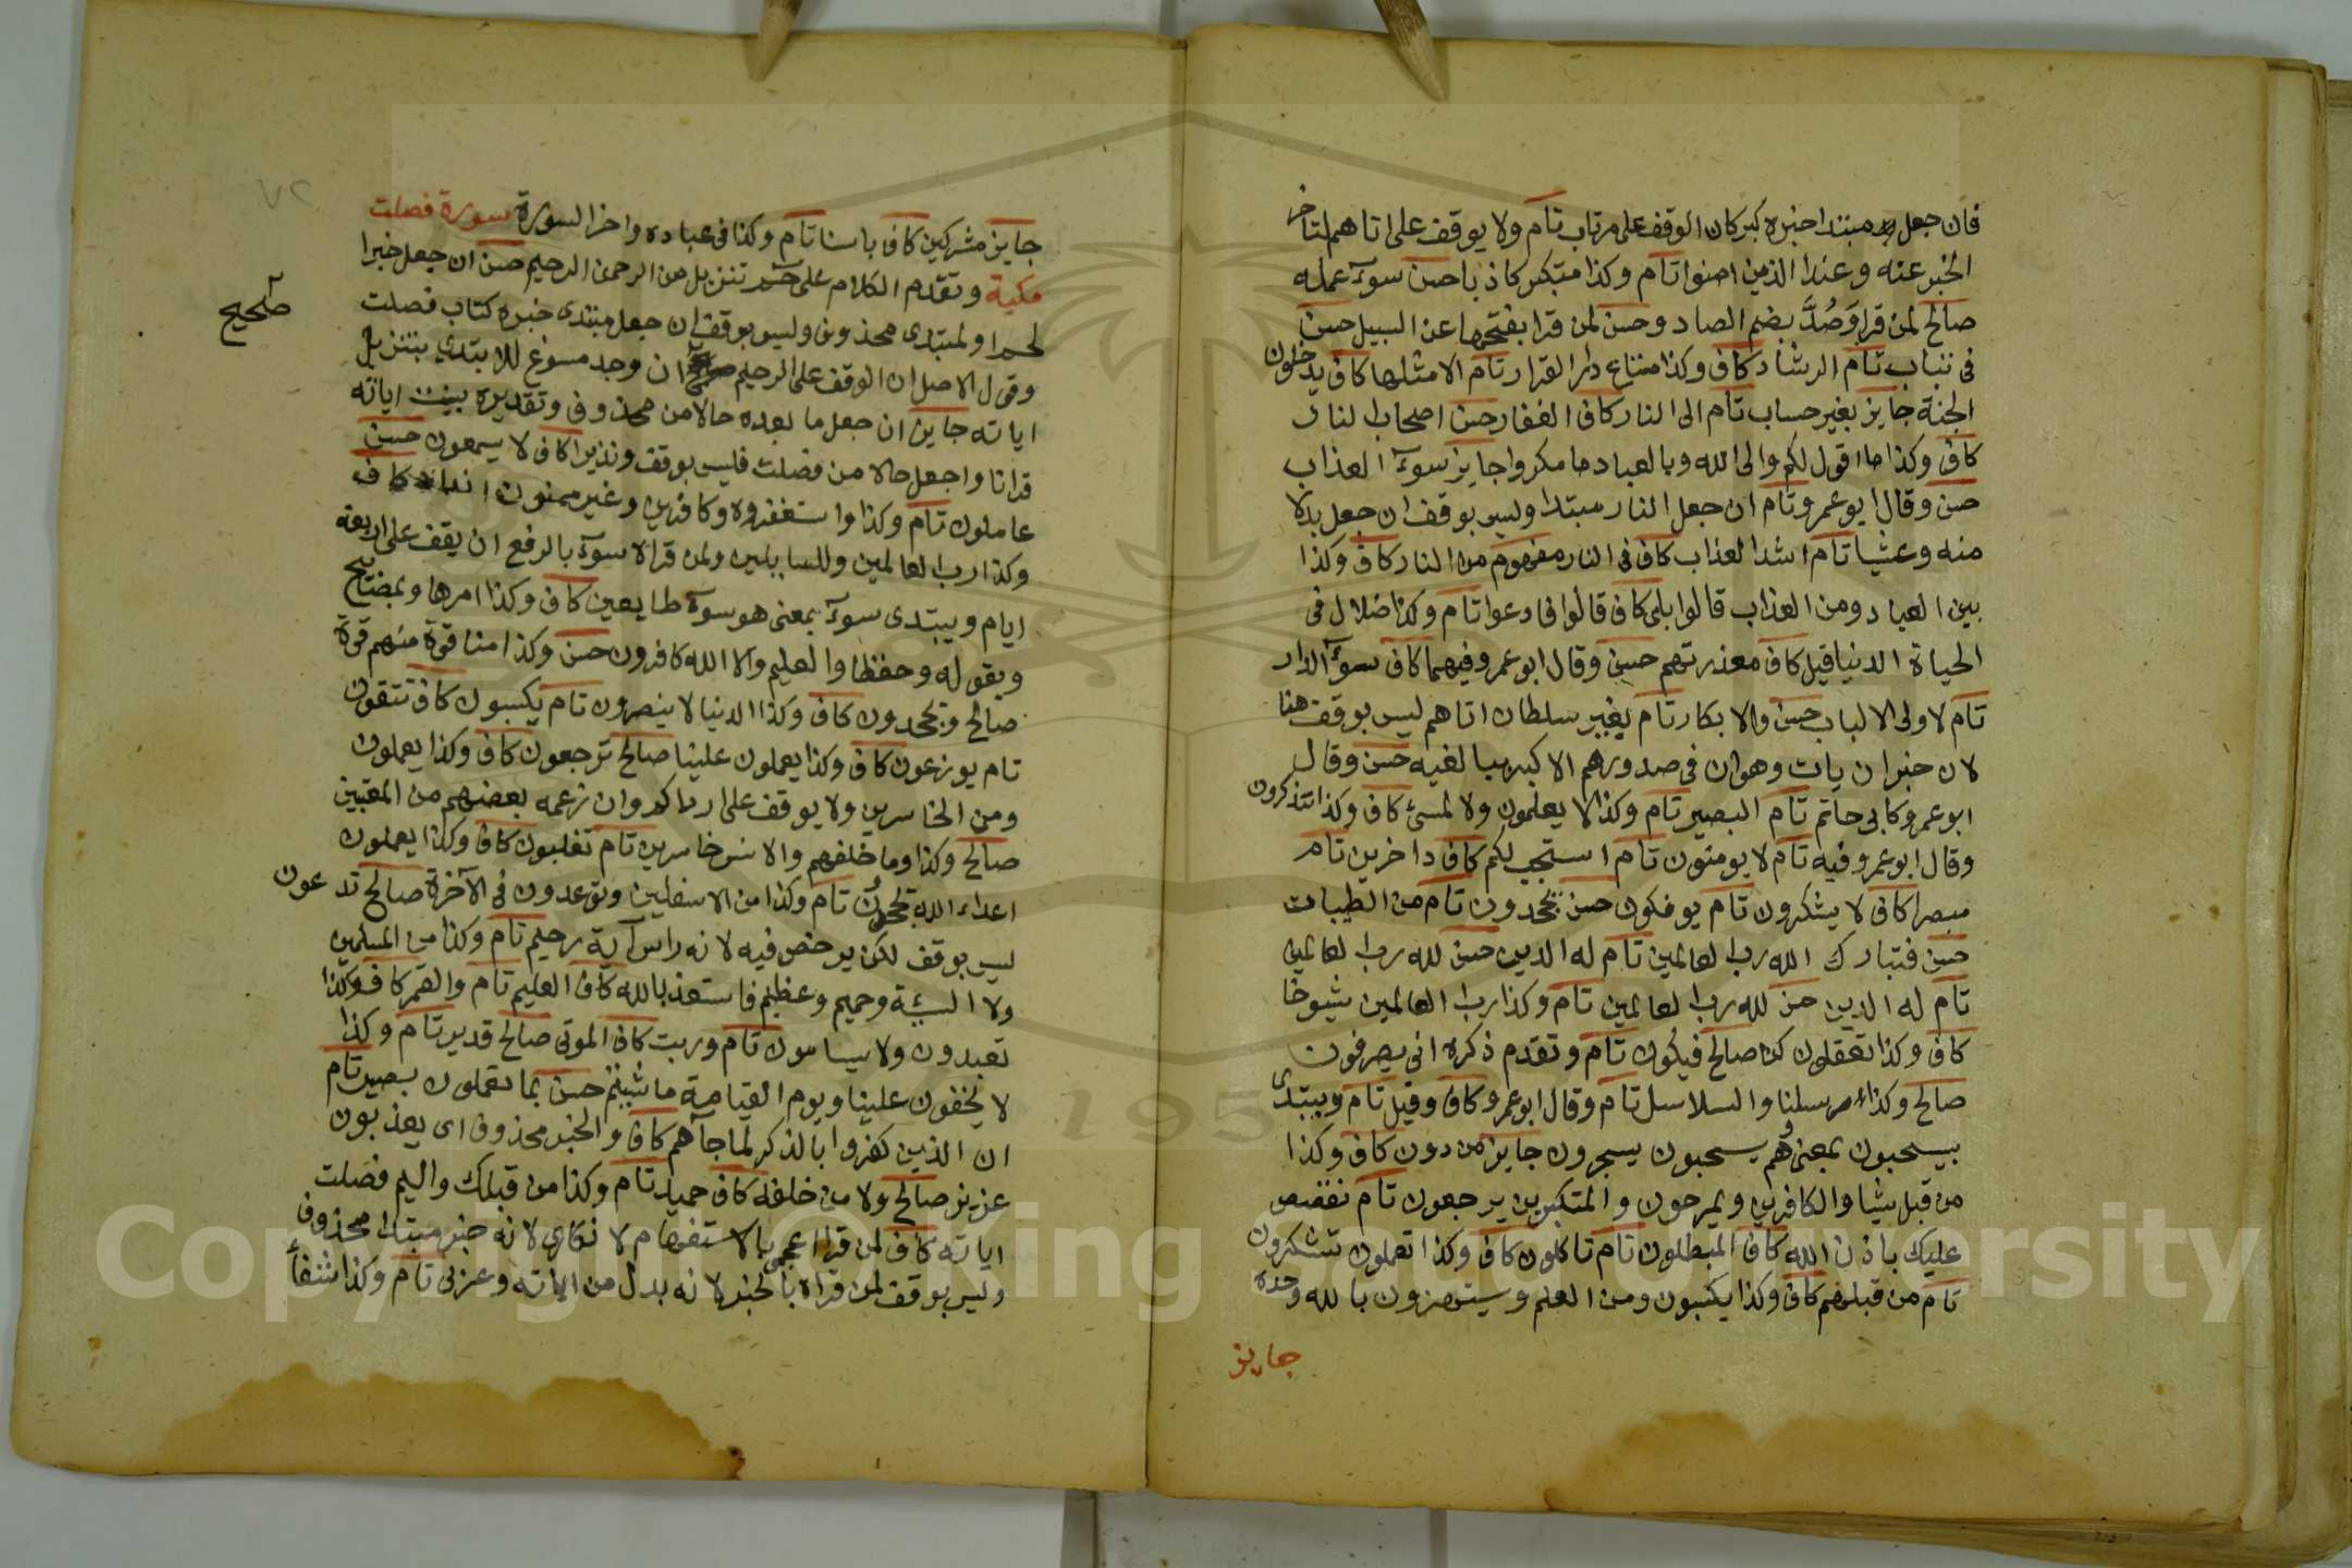 فان جعل مبتدا خبره كبر كان الوقف على مرتاب تام ولا يوقف على اتاهم لتاخر
الخبر عنه وعند الذين امنوا تام وكذا متكبر كاف باحسن سوء عمله
صالح لمن قرا وَصُدَّ بضم الصاد وحسن لمن قرا بفتحها عن السبيل حسن
في تباب تام الرشاد كاف وكذا متاع دار القرار تام الا مثلها كاف يدخلون
الجنة جايز بغير حساب تام الى النار كاف الغفار حسن اصحاب النار
كاف وكذا ما اقول لكم والى الله وبالعباد ما مكروا جايز سوء العذاب
حسن وقال ابو عمرو تام ان جعل النار مبتدا وليس بوقف ان جعل بدلا
منه وعشيا تام اشد العذاب كاف في النار مفهوم من النار كاف وكذا
بين العباد ومن العذاب قالوا بلى كاف قالوا فادعوا تام وكذا ضلال في
الحياة الدنيا قيل كاف معذرتهم حسن وقال ابو عمرو فيهما كاف سوء الدار
تام لاولى الالباب حسن والابكار تام بغير سلطان اتاهم ليس بوقف هنا
لان خبر ان يات وهو ان في صدورهم الا كبر ببالغيه حسن وقال
ابو عمرو كابي حاتم تام البصير تام وكذا لا يعلمون ولا المسئ كاف وكذا تتذكرون
وقال ابو عمرو فيه تام لا يومنون تام استجب لكم كاف داخرين تام
مبصرا كاف لا يشكرون تام يوفكون حسن يجحدون تام من الطيبات
حسن فتبارك الله رب العالمين تام له الدين حسن لله رب العالمين
تام له الدين حسن لله رب العالمين تام وكذا رب العالمين شيوخا
كاف وكذا تعقلون كن صالح فيكون تام وتقدم ذكره اني يصرفون
صالح وكذا رسلنا والسلاسل تام وقال ابو عمرو كاف وقيل تام ويبتدى
بيسحبون بمعنى وهم يسحبون يسجرون جايز من دون كاف وكذا
من قبل شيا والكافرين ويمرحون والمتكبرين يرجعون تام نقصص
عليك باذن الله كاف المبطلون تام تاكلون كاف وكذا تحملون تشكرون
تام من قبلهم كاف وكذا يكسبون ومن العلم ويستهزون بالله وحده
جايز
جايز مشركين كاف باسنا تام وكذا في عباده واخر السورة سورة فصلت
مكية وتقدم الكلام على حم تنزيل من الرحمن الرحيم حسن ان جعل خبرا
لحم او لمبتدى محذوف وليس بوقف ان جعل مبتدى خبره كتاب فصلت
وقول الاصل ان الوقف على الرحيم ان وجد مسوغ للابتدي بتنزيل
صحيح
اياته جايز ان جعل ما بعده حالا من محذوف وتقديره بينت اياته
قرانا واجعل حالا من فصلت فليس بوقف ونذيرا كاف لا يسمعون حسن
عاملون تام وكذا واستغفروه وكافرين وغير ممنون اندادا كاف
وكذا رب العالمين وللسايلين ولمن قراه سوء بالرفع ان يقف على اربعة
ايام ويبتدى سوء بمعنى هو سوء طايعين كاف وكذا امرها وبمصابيح
وبقوله وحفظا والعليم والا الله كافرون حسن وكذا منا قوة منهم قوة
صالح ويجحدون كاف وكذا الدنيا لا ينصرون تام يكسبون كاف تتقون
تام يوزعون كاف وكذا يعملون علينا صالح ترجعون كاف وكذا يعملون
ومن الخاسرين ولا يوقف على ارداكم وان زعمه بعضهم من المعتبين
صالح وكذا وما خلفهم والانس خاسرين تام تغلبون كاف وكذا يعملون
اعداء الله يجحدون تام وكذا من الاسفلين وتوعدون في الآخرة صالح تدعون
ليس بوقف لكن يرخص فيه لانه راس آية رحيم تام وكذا من المسلمين
ولا السيئة وحميم وعظيم فاستعذ بالله كاف العليم تام والقمر كاف وكذا
تعبدون ولا يسامون تام وربت كاف الموتى صالح قدير تام وكذا
لا يخفون علينا ويوم القيامة ما شيتم حسن بما تعملون بصير تام
ان الذين كفروا بالذكر لما جآهم كاف والخبر محذوف اى يعذبون
عزيز صالح ولا من خلفه كاف حميد تام وكذا من قبلك واليم فصلت
اياته كاف لمن قرا اعجمي بالاستفهام لانه خبر مبتدا محذوف
وليس بوقف لمن قراه بالخبر لانه بدل من اياته وعربي تام وكذا شفاء
٧٢
Copyright © King Saud University
195